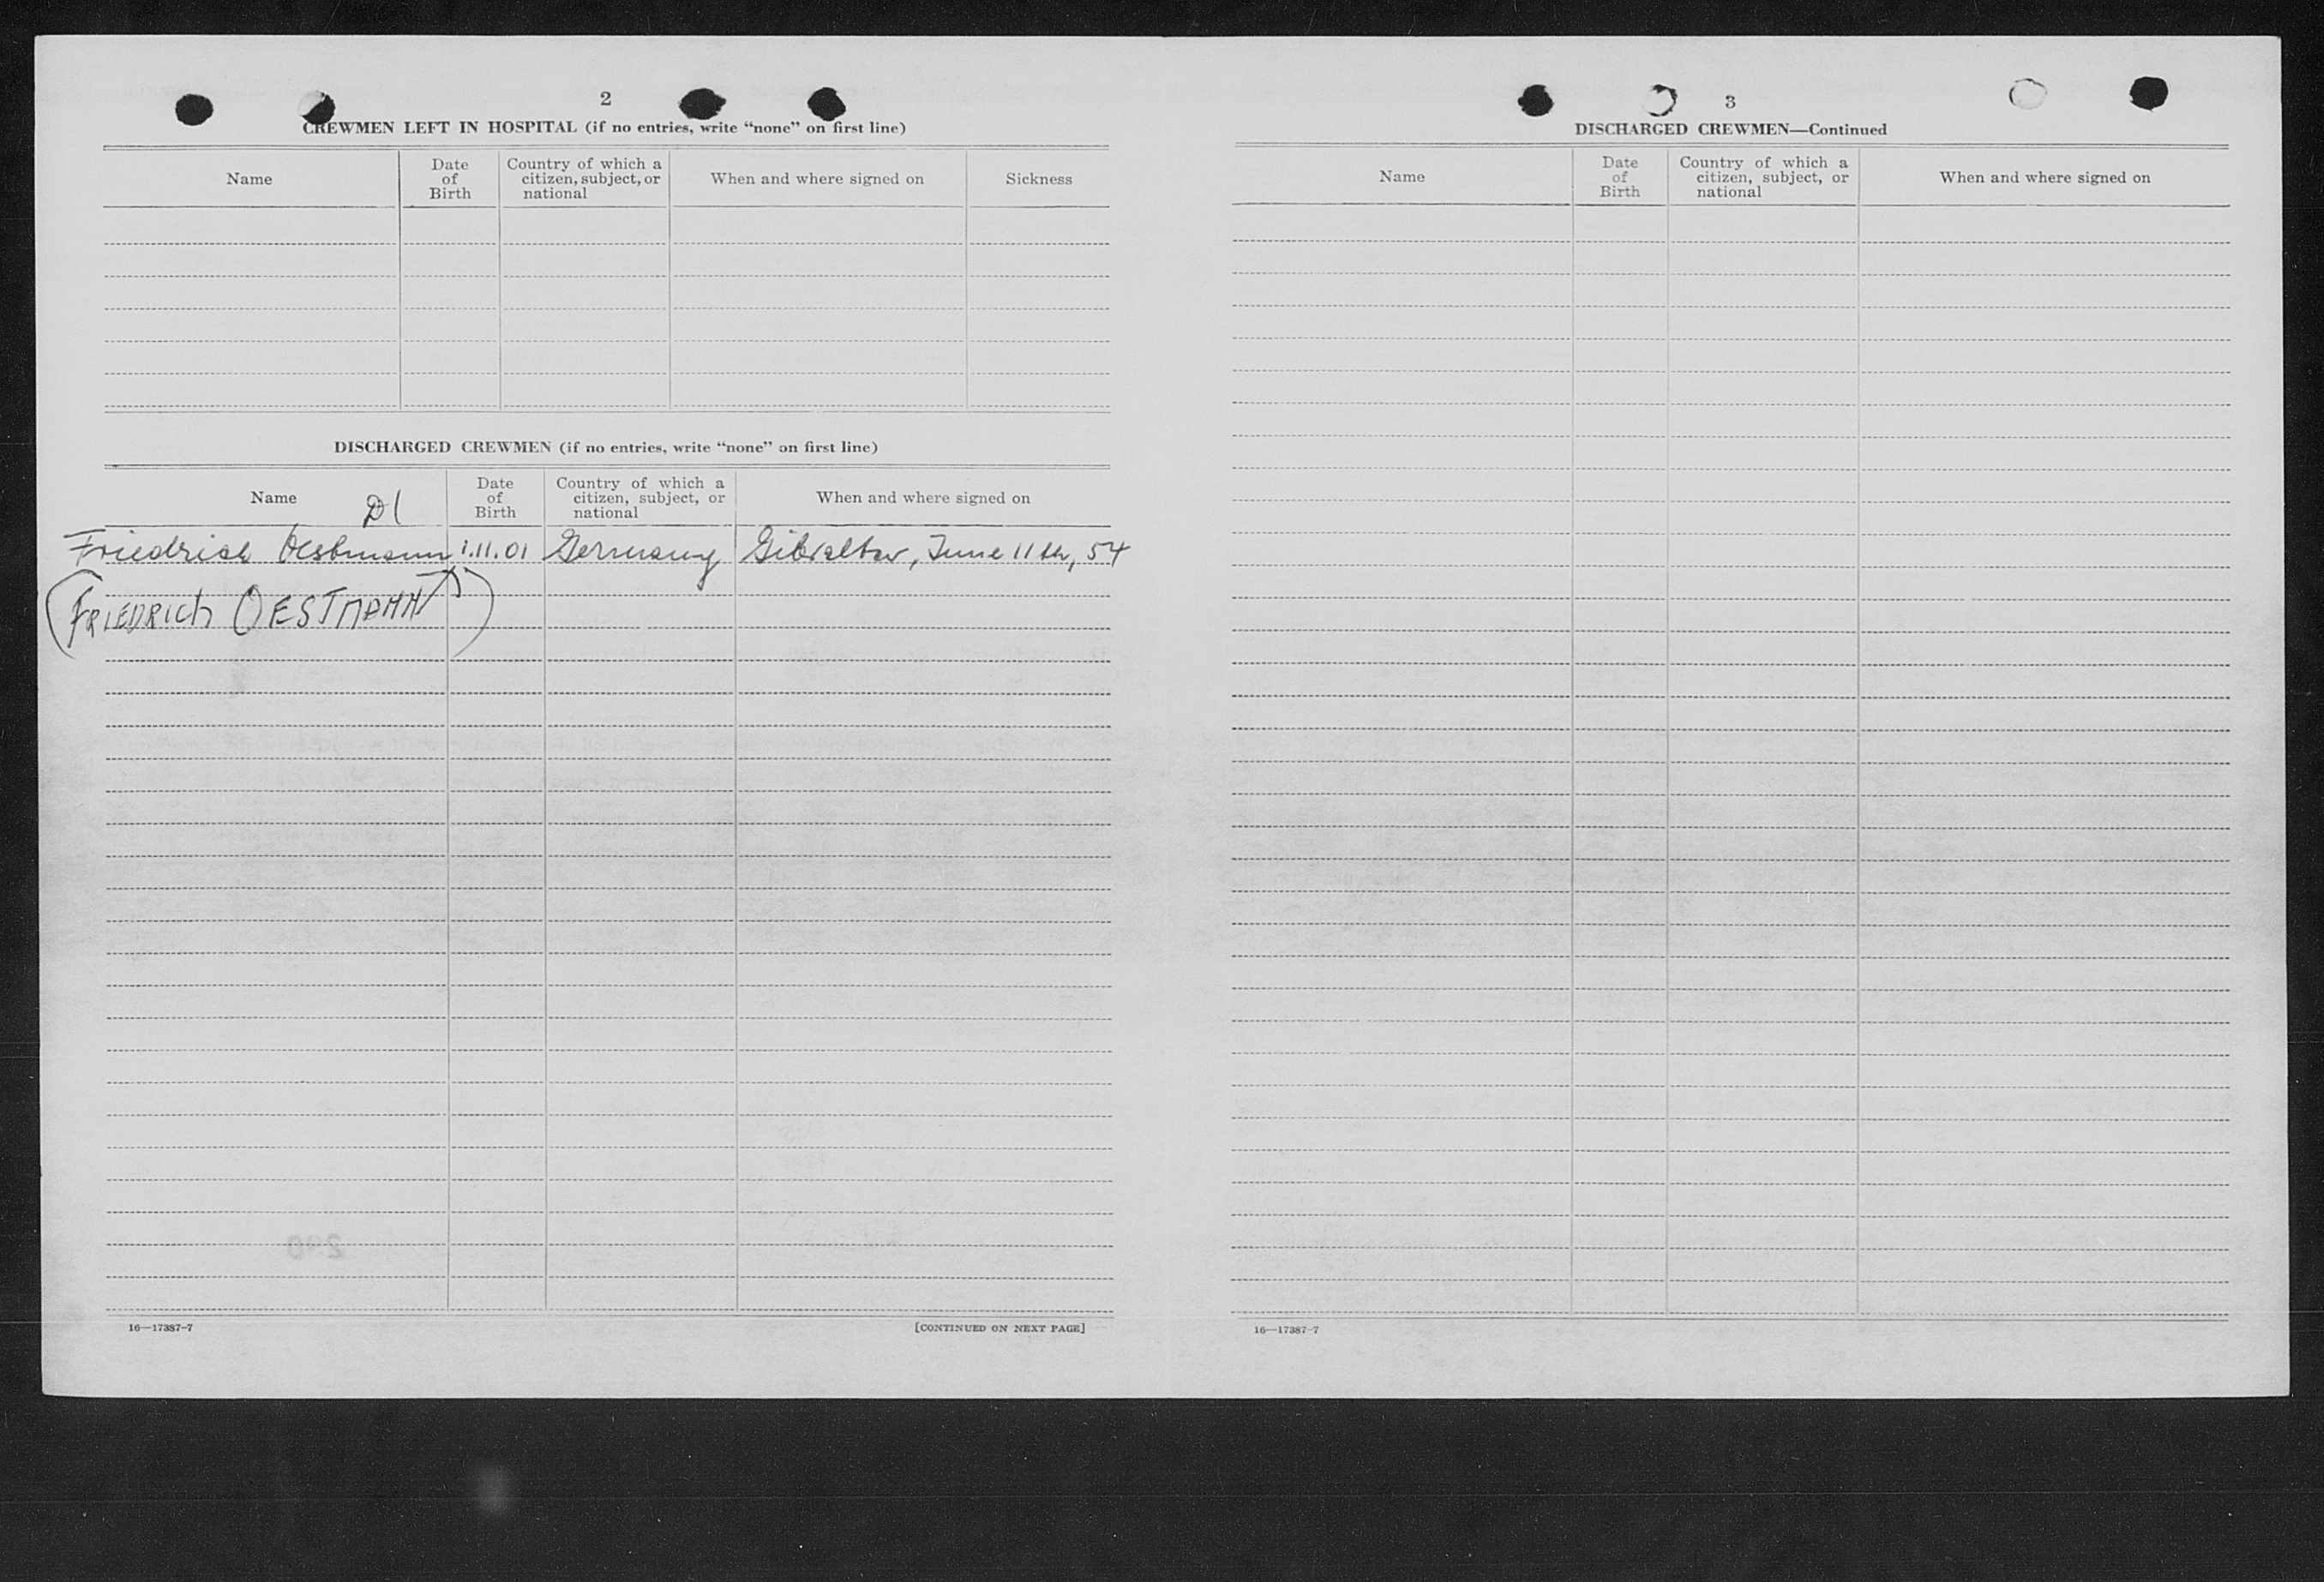 2
CREWMEN LEFT IN HOSPITAL (if no entries, write “none” on first line)
Name
Date of Birth
Country of which a citizen, subject, or national
When and where signed on
Sickness
DISCHARGED CREWMEN (if no entries, write “none” on first line)
Name
D1
Date of Birth
Country of which a citizen, subject, or national
When and where signed on
Friedrich Oestmann 1.11.01 Germany Gibraltar, June 11th, 54
(FRIEDRICH OESTMANN)
16—17387-7
[CONTINUED ON NEXT PAGE]
3
DISCHARGED CREWMEN—Continued
Name
Date of Birth
Country of which a citizen, subject, or national
When and where signed on
16—17387-7